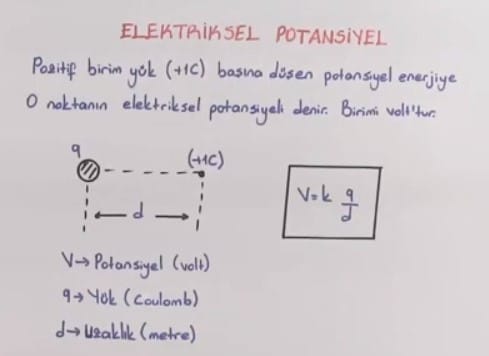 ELEKTRİKSEL POTANSİYEL
Pozitif birim yük (+1C) başına düşen potansiyel enerjiye
O noktanın elektriksel potansiyeli denir. Birimi volt'tur.
q
(+1C)
d
V=k q/d
V→ Potansiyel (volt)
q→ Yük (Coulomb)
d→ Uzaklık (metre)